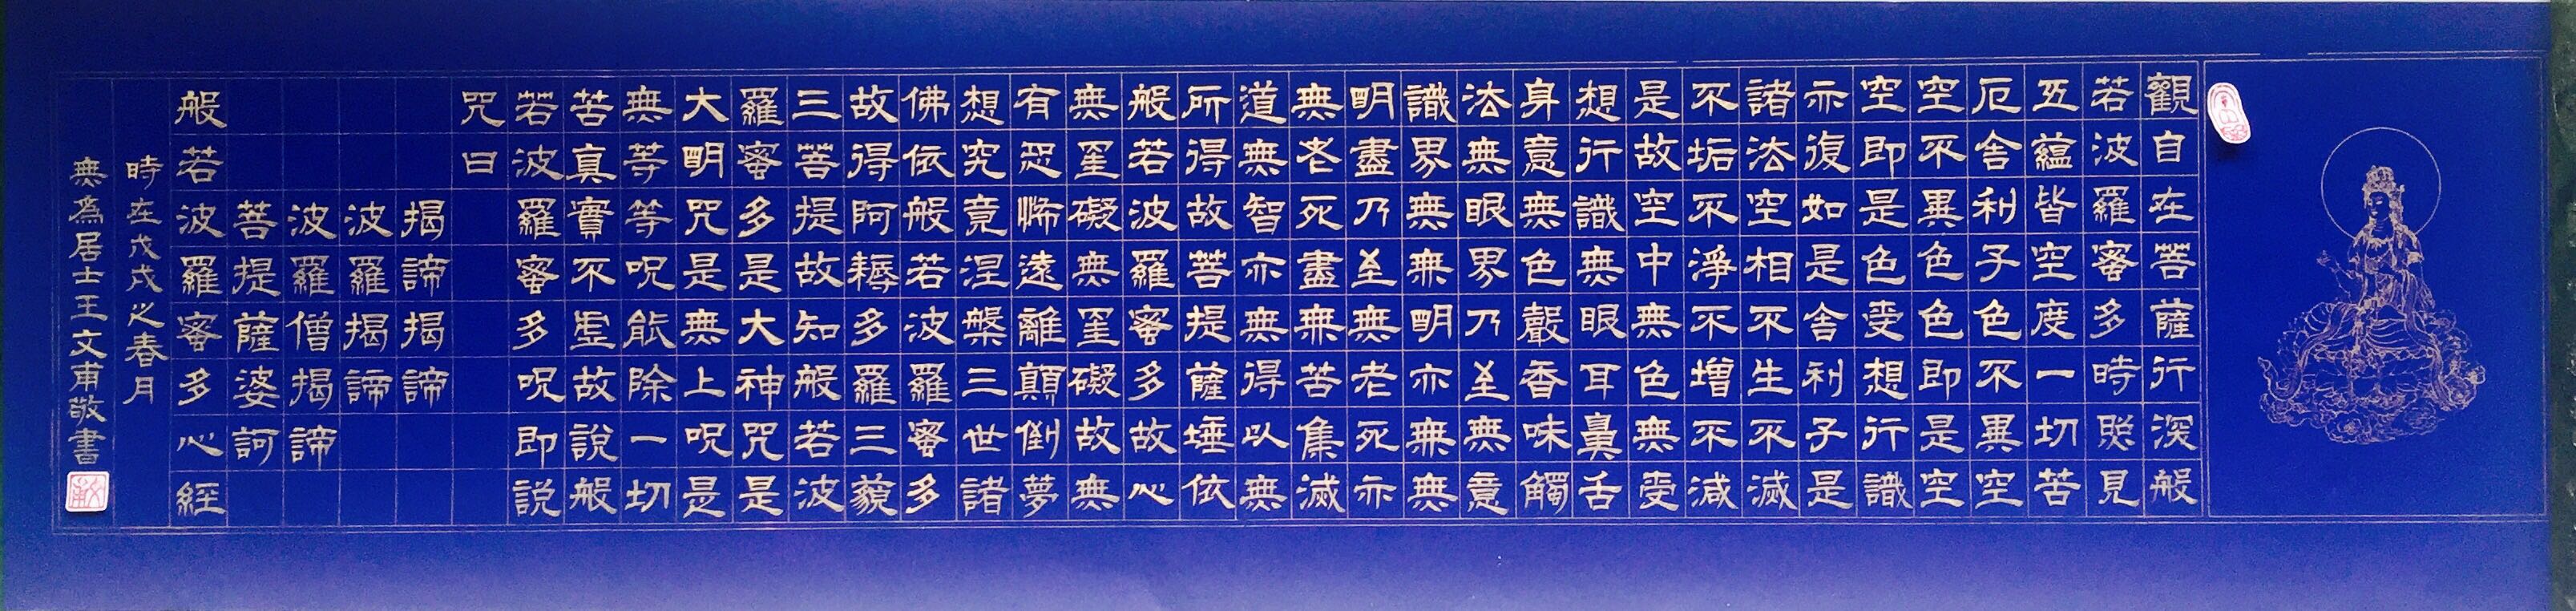 觀自在菩薩行深般
若波羅蜜多時照見
五蘊皆空度一切苦
厄舍利子色不異空
空不異色色即是空
空即是色受想行識
亦復如是舍利子是
諸法空相不生不滅
不垢不淨不增不減
是故空中無色無受
想行識無眼耳鼻舌
身意無色聲香味觸
法無眼界乃至無意
識界無無明亦無無
明盡乃至無老死亦
無老死盡無苦集滅
道無智亦無得以無
所得故菩提薩埵依
般若波羅蜜多故心
無罣礙無罣礙故無
有恐怖遠離顛倒夢
想究竟涅槃三世諸
佛依般若波羅蜜多
故得阿耨多羅三藐
三菩提故知般若波
羅蜜多是大神咒是
大明咒是無上呪是
無等等呪能除一切
苦真實不虛故說般
若波羅蜜多呪即說
咒曰
揭諦揭諦
波羅揭諦
波羅僧揭諦
菩提薩婆訶
般若波羅蜜多心經
時在戊戌之春月
無為居士王文甫敬書
文甫